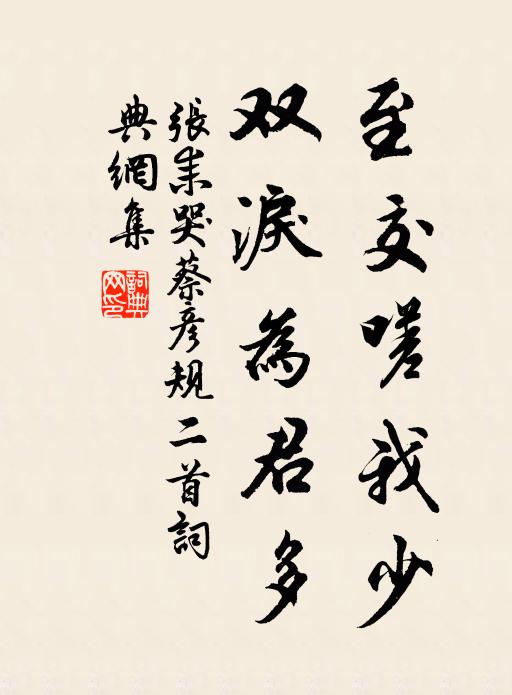 至交嗟我少
双淚為君多
張耒哭蔡彦規二首詞
典網集
詞典网印